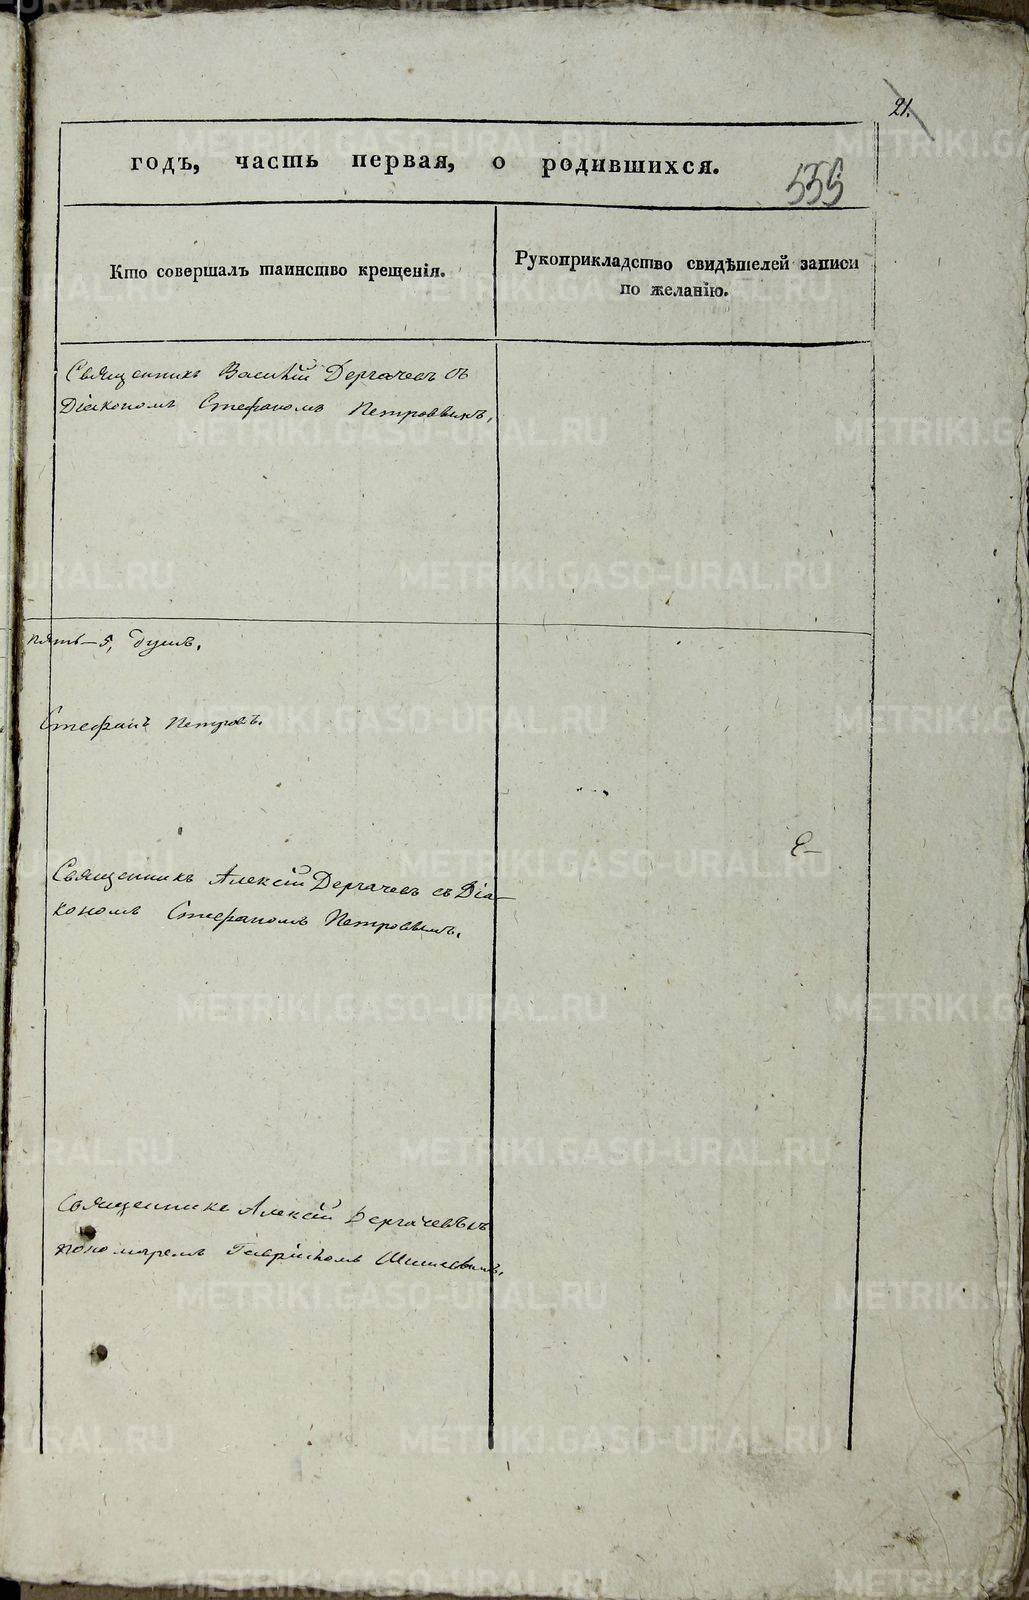 21.
годъ, часть первая, о родившихся.
Кто совершалъ таинство крещенія.
Рукоприкладство свидѣтелей записи
по желанію.
Священникъ Василій Дергачевъ съ
Діакономъ Стефаномъ Петровымъ.
пять—5, душъ.
Стефанъ Петровъ.
Священникъ Алексій Дергачевъ съ Діа-
кономъ Стефаномъ Петровымъ.
Священникъ Алексій Дергачевъ съ
пономаремъ
METRIKI.GASO-URAL.RU